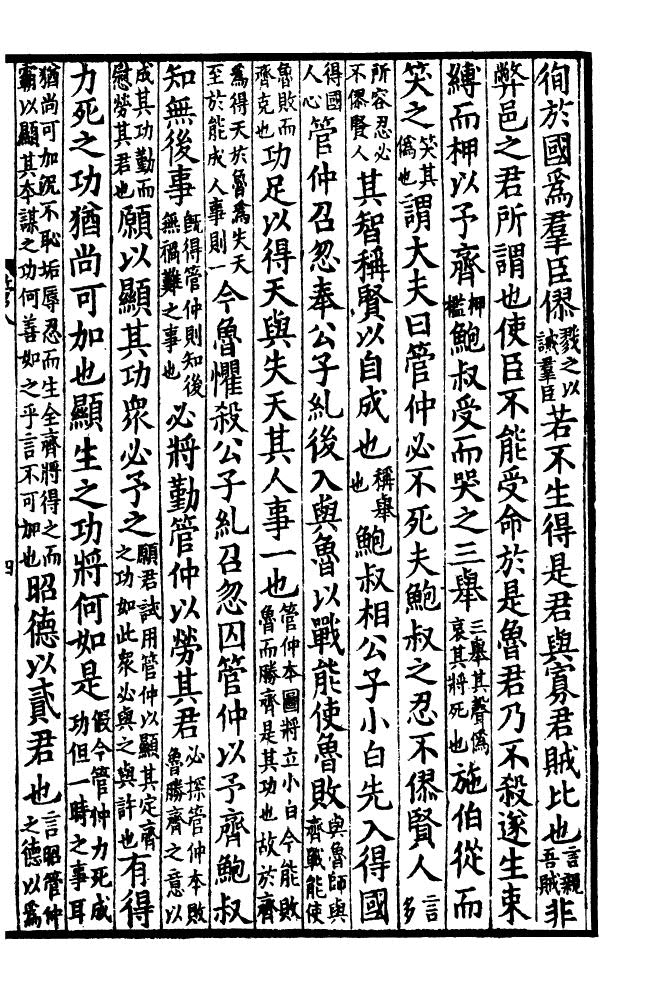 徇於國爲羣臣僇戮之以誡羣臣若不生得是君與寡君賊比也言親吾賊非
弊邑之君所謂也使臣不能受命於是魯君乃不殺遂生束
縛而柙以予齊柙檻鮑叔受而哭之三舉三舉其聲僞哀其將死也施伯從而
笑之笑其僞也謂大夫曰管仲必不死夫鮑叔之忍不僇賢人言多
所容忍必不僇賢人其智稱賢以自成也稱舉也鮑叔相公子小白先入得國
得國人心管仲召忽奉公子糺後入與魯以戰能使魯敗與魯師與齊戰能使
魯敗而齊克也功足以得天與失天其人事一也管仲本圖將立小白今能敗魯而勝齊是其功也故於齊
爲得天於魯爲失天至於能成人事則一今魯懼殺公子糺召忽囚管仲以予齊鮑叔
知無後事旣得管仲則知後無禍難之事也必將勤管仲以勞其君必探管仲本敗魯勝齊之意以
成其功勤而慰勞其君也願以顯其功衆必予之願君誠用管仲以顯其定齊之功如此衆必與之與許也有得
力死之功猶尚可加也顯生之功將何如是假令管仲力死成功但一時之事耳
猶尚可加況不恥垢辱忍而生全齊將得之而霸以顯其本謀之功何善如之乎言不可加也昭德以貳君也言昭管仲之德以爲
四